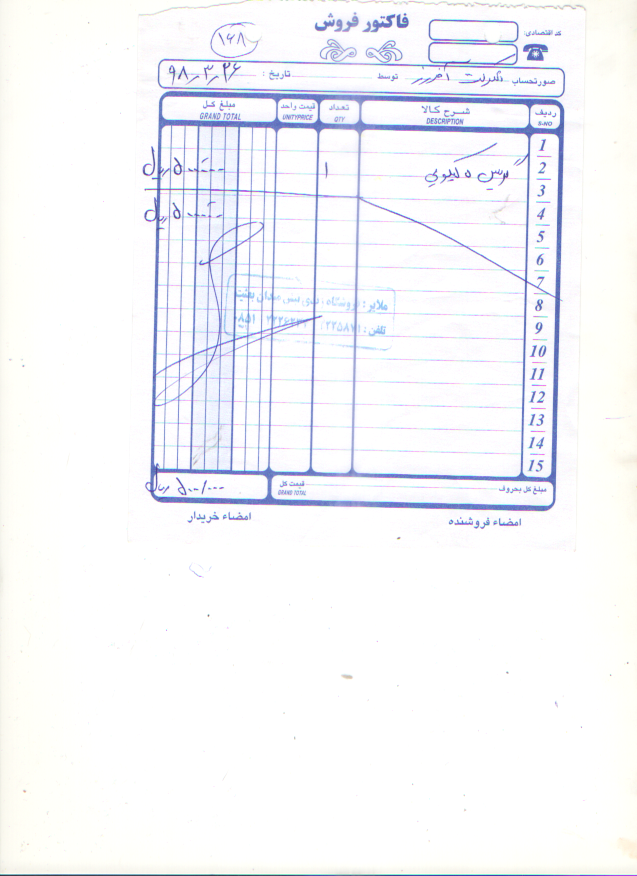 ۱۶۸
فاکتور فروش
کد اقتصادی:
صورتحساب توسط تاریخ : ۹۸٫۳٫۲۶
ردیف S-NO شرح کالا DESCRIPTION تعداد QTY قیمت واحد UNITYPRICE مبلغ کل GRAND TOTAL
1
2 گریس ۵ کیلویی ۱ ۵۰۰۰۰۰ ریال
3
4 ۵۰۰۰۰۰ ریال
5
6
7
8
ملایر : فروشگاه
9
تلفن :
10
11
12
13
14
15
مبلغ کل بحروف قیمت کل GRAND TOTAL ۵۰۰/۰۰۰ ریال
امضاء فروشنده امضاء خریدار